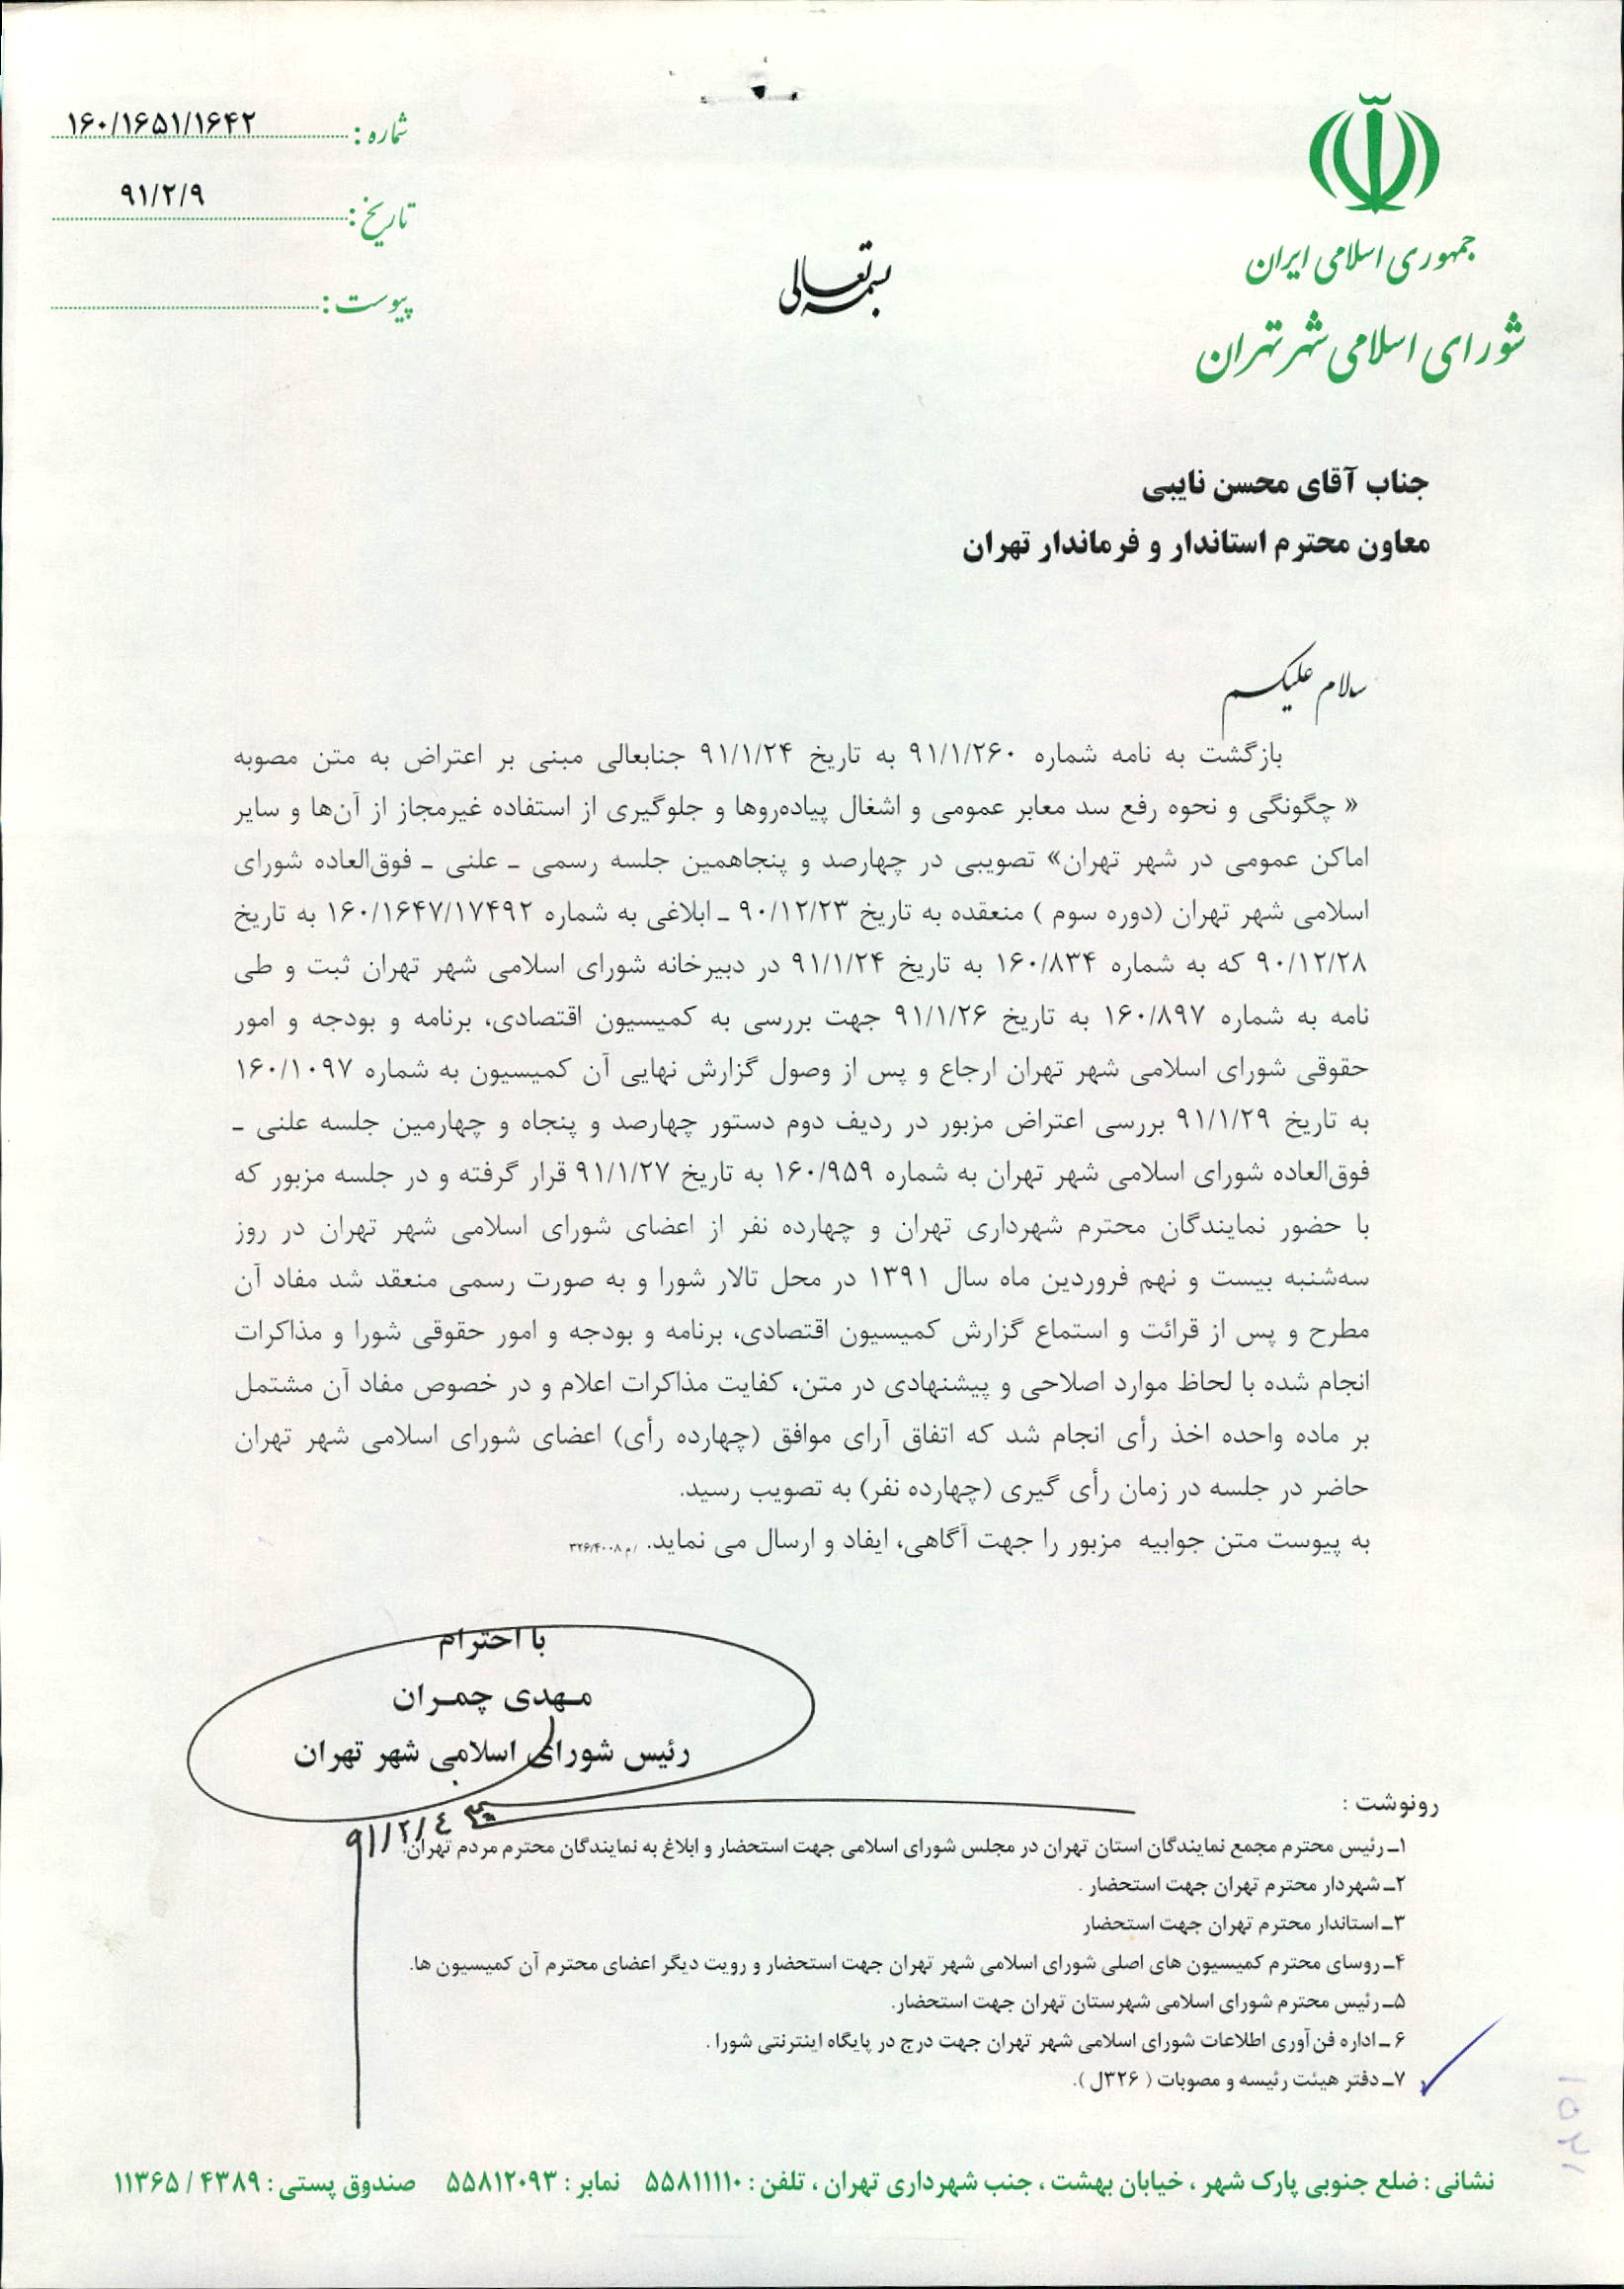 شماره: ۱۶۰/۱۶۵۱/۱۶۴۲
تاریخ: ۹۱/۲/۹
پیوست:
جمهوری اسلامی ایران
شورای اسلامی شهر تهران
بسمه تعالی
جناب آقای محسن نایبی
معاون محترم استاندار و فرماندار تهران
سلام علیکم
بازگشت به نامه شماره ۹۱/۱/۲۶۰ به تاریخ ۹۱/۱/۲۴ جنابعالی مبنی بر اعتراض به متن مصوبه
« چگونگی و نحوه رفع سد معابر عمومی و اشغال پیاده‌روها و جلوگیری از استفاده غیرمجاز از آن‌ها و سایر
اماکن عمومی در شهر تهران» تصویبی در چهارصد و پنجاهمین جلسه رسمی ـ علنی ـ فوق‌العاده شورای
اسلامی شهر تهران (دوره سوم ) منعقده به تاریخ ۹۰/۱۲/۲۳ ـ ابلاغی به شماره ۱۶۰/۱۶۴۷/۱۷۴۹۲ به تاریخ
۹۰/۱۲/۲۸ که به شماره ۱۶۰/۸۳۴ به تاریخ ۹۱/۱/۲۴ در دبیرخانه شورای اسلامی شهر تهران ثبت و طی
نامه به شماره ۱۶۰/۸۹۷ به تاریخ ۹۱/۱/۲۶ جهت بررسی به کمیسیون اقتصادی، برنامه و بودجه و امور
حقوقی شورای اسلامی شهر تهران ارجاع و پس از وصول گزارش نهایی آن کمیسیون به شماره ۱۶۰/۱۰۹۷
به تاریخ ۹۱/۱/۲۹ بررسی اعتراض مزبور در ردیف دوم دستور چهارصد و پنجاه و چهارمین جلسه علنی ـ
فوق‌العاده شورای اسلامی شهر تهران به شماره ۱۶۰/۹۵۹ به تاریخ ۹۱/۱/۲۷ قرار گرفته و در جلسه مزبور که
با حضور نمایندگان محترم شهرداری تهران و چهارده نفر از اعضای شورای اسلامی شهر تهران در روز
سه‌شنبه بیست و نهم فروردین ماه سال ۱۳۹۱ در محل تالار شورا و به صورت رسمی منعقد شد مفاد آن
مطرح و پس از قرائت و استماع گزارش کمیسیون اقتصادی، برنامه و بودجه و امور حقوقی شورا و مذاکرات
انجام شده با لحاظ موارد اصلاحی و پیشنهادی در متن، کفایت مذاکرات اعلام و در خصوص مفاد آن مشتمل
بر ماده واحده اخذ رأی انجام شد که اتفاق آرای موافق (چهارده رأی) اعضای شورای اسلامی شهر تهران
حاضر در جلسه در زمان رأی گیری (چهارده نفر) به تصویب رسید.
به پیوست متن جوابیه مزبور را جهت آگاهی، ایفاد و ارسال می نماید. /م ۳۲۶/۴۰۰۸
با احترام
مـهدی چمـران
رئیس شورای اسلامی شهر تهران
۹۱/۲/٤
رونوشت :
۱ـ رئیس محترم مجمع نمایندگان استان تهران در مجلس شورای اسلامی جهت استحضار و ابلاغ به نمایندگان محترم مردم تهران.
۲ـ شهردار محترم تهران جهت استحضار .
۳ـ استاندار محترم تهران جهت استحضار
۴ـ روسای محترم کمیسیون های اصلی شورای اسلامی شهر تهران جهت استحضار و رویت دیگر اعضای محترم آن کمیسیون ها.
۵ـ رئیس محترم شورای اسلامی شهرستان تهران جهت استحضار.
۶ ـ اداره فن‌آوری اطلاعات شورای اسلامی شهر تهران جهت درج در پایگاه اینترنتی شورا .
۷ـ دفتر هیئت رئیسه و مصوبات ( ۳۲۶ل ).
نشانی : ضلع جنوبی پارک شهر ، خیابان بهشت ، جنب شهرداری تهران ، تلفن : ۵۵۸۱۱۱۱۰ نمابر : ۵۵۸۱۲۰۹۳ صندوق پستی : ۴۳۸۹ / ۱۱۳۶۵